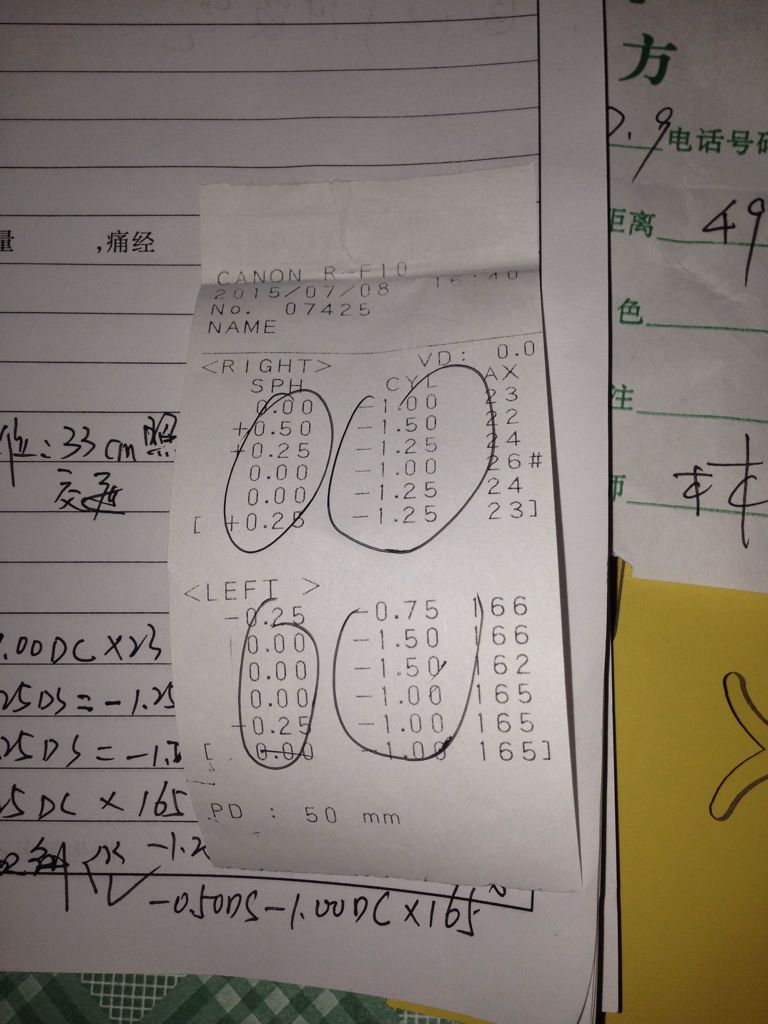 方
0.9 电话号码
距离 49
量 ,痛经
色
注
师
CANON R-F10
2015/07/08 16:40
No. 07425
NAME
<RIGHT> VD: 0.0
SPH CYL AX
0.00 -1.00 23
+0.50 -1.50 22
+0.25 -1.25 24
0.00 -1.00 26#
0.00 -1.25 24
[ +0.25 -1.25 23]
<LEFT >
-0.25 -0.75 166
0.00 -1.50 166
0.00 -1.50 162
0.00 -1.00 165
-0.25 -1.00 165
[ 0.00 -1.00 165]
PD : 50 mm
:33cm
.00DC×23
25DS=-1.25
25DS=-1.
5DC×165
-1.2
-0.50DS-1.00DC×165